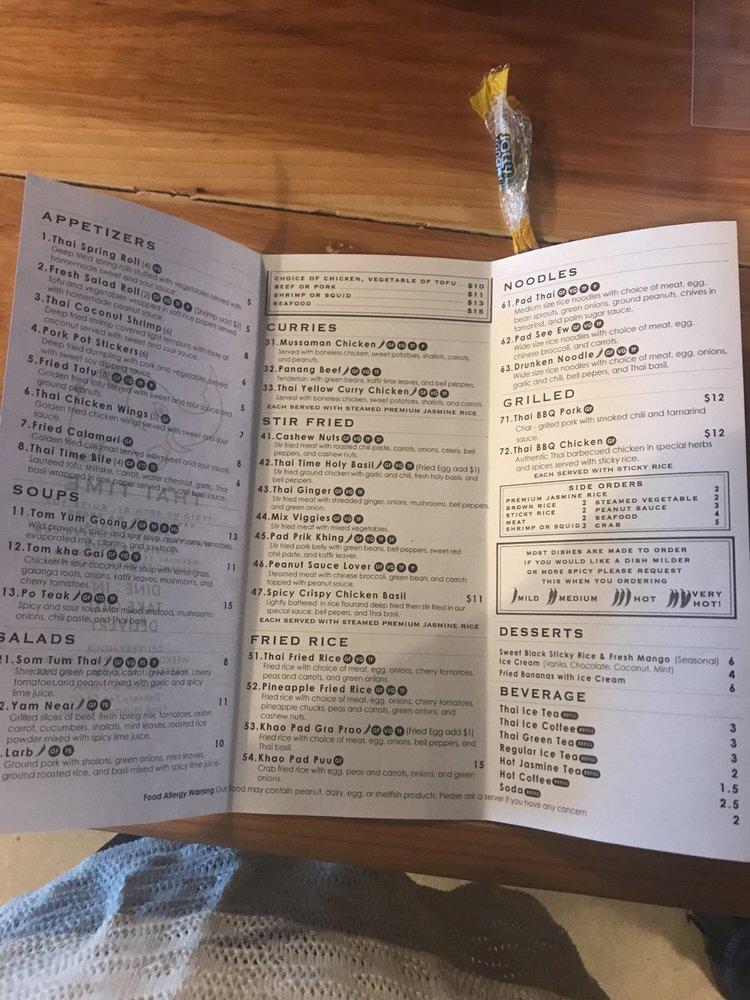 APPETIZERS
1.Thai Spring Roll (4) VG
Deep fried spring rolls stuffed with vegetables served with
homemade sweet and sour sauce. 5
2.Fresh Salad Roll (2) (Shrimp add $2)
Tofu and vegetables wrapped in soft rice papers served
with homemade peanut sauce. 5
3.Thai Coconut Shrimp (6)
Deep fried shrimp covered light tempura with taste of
coconut served with sweet and sour sauce. 8
4.Pork Pot Stickers (6)
Deep fried dumpling with pork and vegetable, served
with sweet soy dipping sauce. 6
5.Fried Tofu (8)
Golden fried tofu served with sweet and sour sauce and
ground peanuts. 5
6.Thai Chicken Wings (5) GF
Golden fried chicken wings served with sweet and sour
sauce. 7
7.Fried Calamari GF
Golden fried calamari served with sweet and sour sauce. 8
8.Thai Time Bite (4) GF VG TF
Sauteed tofu, shitake, carrot, water chestnut, garlic, Thai
basil wrapped in rice paper served with chili basil sauce. 6
SOUPS
11.Tom Yum Goong
Wild prawns in spicy and sour soup, mushrooms, tomatoes,
evaporated milk, cilantro, and sawtooth. 13
12.Tom kha Gai GF VG TF
Chicken in sour coconut mix soup with lemongrass,
galanga roots, onions, kaffir leaves, mushrooms, and
cherry tomatoes. 11
13.Po Teak GF
Spicy and sour soup with mixed seafood, mushrooms,
onions, chili paste, and Thai basil. 15
SALADS
21.Som Tum Thai
Shredded green papaya, carrot, green bean, cherry
tomatoes, and peanut mixed with garlic and spicy
lime juice. 8
2.Yam Near GF FS
Grilled slices of beef, fresh spring mix, tomatoes, onion,
carrot, cucumbers, shallots, mint leaves, roasted rice
powder mixed with spicy lime juice. 11
.Larb GF FS
Ground pork with shallots, green onions, mint leaves,
ground roasted rice, and basil mixed with spicy lime juice. 10
Food Allergy Warning Our food may contain peanut, dairy, egg, or shellfish products. Please ask a server if you have any concern
CHOICE OF CHICKEN, VEGETABLE OF TOFU $10
BEEF OR PORK $11
SHRIMP OR SQUID $13
SEAFOOD $15
CURRIES
31.Mussaman Chicken GF VG TF P
Served with boneless chicken, sweet potatoes, shallots, carrots,
and peanuts.
32.Panang Beef GF VG TF
Tenderloin with green beans, kaffir lime leaves, and bell peppers.
33.Thai Yellow Curry Chicken GF VG TF
Served with boneless chicken, sweet potatoes, shallots, and carrots.
EACH SERVED WITH STEAMED PREMIUM JASMINE RICE
STIR FRIED
41.Cashew Nuts GF VG TF TF
Stir fried meat with roasted chili paste, carrots, onions, celery, bell
peppers, and cashew nuts.
42.Thai Time Holy Basil GF VG TF (Fried Egg add $1)
Stir fried ground chicken with garlic and chili, fresh holy basil, and
bell peppers.
43.Thai Ginger GF VG TF
Stir fried meat with shredded ginger, onions, mushrooms, bell peppers,
and green onion.
44.Mix Viggies GF VG TF
Stir fried meat with mixed vegetables.
45.Pad Prik Khing GF VG TF
Stir fried pork belly with green beans, bell peppers, sweet red
chili paste, and kaffir leaves.
46.Peanut Sauce Lover GF VG TF P
Steamed meat with chinese broccoli, green bean, and carrots
topped with peanut sauce.
47.Spicy Crispy Chicken Basil $11
Lightly battered in rice flourand deep fried then stir fried in our
special sauce, bell peppers, and Thai basil.
EACH SERVED WITH STEAMED PREMIUM JASMINE RICE
FRIED RICE
51.Thai Fried Rice GF VG TF
Fried rice with choice of meat, egg, onions, cherry tomatoes,
peas and carrots, and green onions.
52.Pineapple Fried Rice GF VG TF
Fried rice with choice of meat, egg, onions, cherry tomatoes,
pineapple chucks, peas and carrots, green onions, and
cashew nuts.
53.Khao Pad Gra Prao GF VG TF (Fried Egg add $1)
Fried rice with choice of meat, egg, onions, bell peppers, and
Thai basil.
54.Khao Pad Puu GF 15
Crab fried rice with egg, peas and carrots, onions, and green
onions.
NOODLES
61.Pad Thai GF VG TF P
Medium size rice noodles with choice of meat, egg,
bean sprouts, green onions, ground peanuts, chives in
tamarind, and palm sugar sauce.
62.Pad See Ew GF VG TF
Wide size rice noodles with choice of meat, egg,
chinese broccoli, and carrots.
63.Drunken Noodle GF VG TF
Wide size rice noodles with choice of meat, egg, onions,
garlic and chili, bell pepers, and Thai basil.
GRILLED
71.Thai BBQ Pork GF $12
Char - grilled pork with smoked chili and tamarind
sauce.
72.Thai BBQ Chicken GF $12
Authentic Thai barbecued chicken in special herbs
and spices served with sticky rice.
EACH SERVED WITH STICKY RICE
SIDE ORDERS
PREMIUM JASMINE RICE 2
BROWN RICE 2 STEAMED VEGETABLE 2
STICKY RICE 2 PEANUT SAUCE 3
MEAT 2 SEAFOOD 4
SHRIMP OR SQUID 3 CRAB 5
MOST DISHES ARE MADE TO ORDER
IF YOU WOULD LIKE A DISH MILDER
OR MORE SPICY PLEASE REQUEST
THIS WHEN YOU ORDERING
MILD MEDIUM HOT VERY HOT!
DESSERTS
Sweet Black Sticky Rice & Fresh Mango (Seasonal) 6
Ice Cream (Vanila, Chocolate, Coconut, Mint) 4
Fried Bananas with Ice Cream 6
BEVERAGE
Thai Ice Tea REFILL 3
Thai Ice Coffee REFILL 3
Thai Green Tea REFILL 3
Regular Ice Tea REFILL 3
Hot Jasmine Tea REFILL 1.5
Hot Coffee REFILL 2.5
Soda REFILL 2